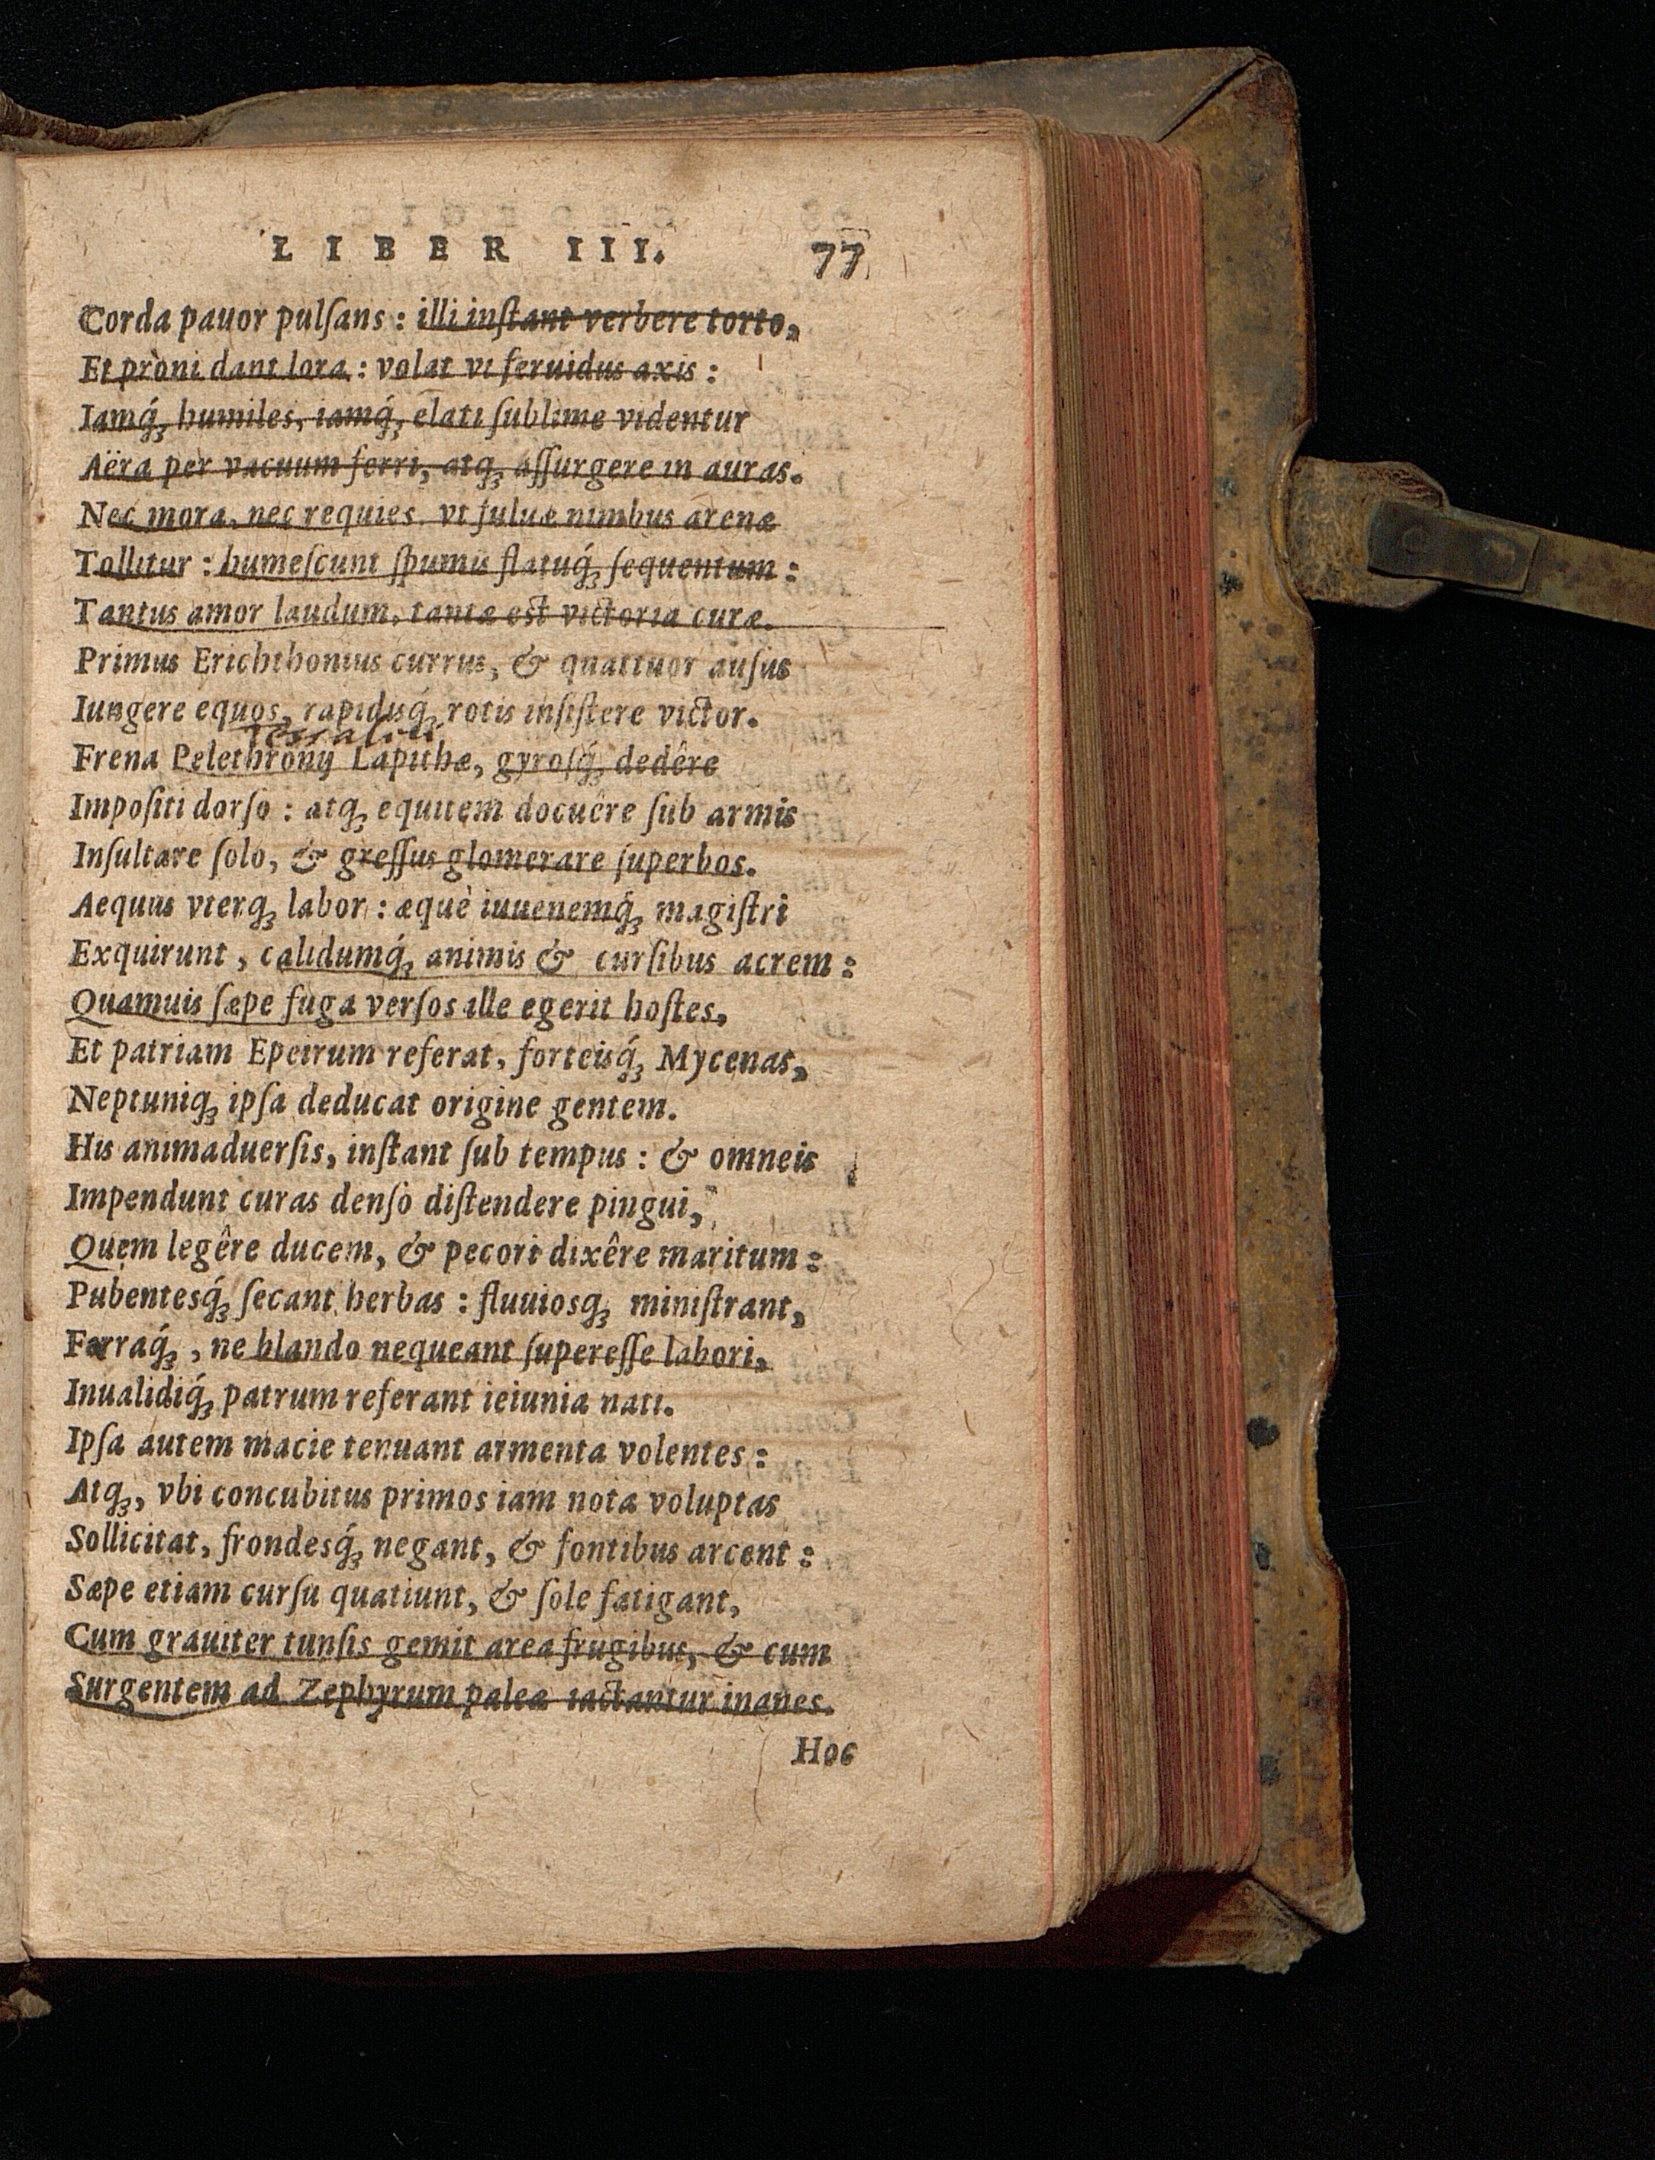 LIBER III. 77
Corda pauor pulſans: illi inſtant verbere torto,
Et pròni dant lora: volat vi feruidus axis:
Iamq́ꝫ humiles, iamq́ꝫ elati ſublime videntur
Aëra per vacuum ferri, atqꝫ aſſurgere in auras.
Nec mora, nec requies. vt fuluæ nimbus arenæ
Tollitur: humeſcunt ſpumis flatuq́ꝫ ſequentum:
Tantus amor laudum, tantæ est victoria curæ.
Primus Erichthonius currus, & quattuor auſus
Iungere equos, rapidusq́ꝫ rotis inſiſtere victor.
Tessalici
Frena Pelethronij Lapithæ, gyroſq́ꝫ dedêre
Impoſiti dorſo: atqꝫ equitem docuêre ſub armis
Inſultare ſolo, & greſſus glomerare ſuperbos.
Aequus vterqꝫ labor: æquè iuuenemq́ꝫ magiſtri
Exquirunt, calidumq́ꝫ animis & curſibus acrem:
Quamuis ſæpe fuga verſos ille egerit hoſtes,
Et patriam Epeirum referat, forteisq́ꝫ Mycenas,
Neptuniqꝫ ipſa deducat origine gentem.
His animaduerſis, inſtant ſub tempus: & omneis
Impendunt curas denſo diſtendere pingui,
Quem legêre ducem, & pecori dixêre maritum:
Pubentesq́ꝫ ſecant herbas: fluuiosqꝫ miniſtrant,
Farraq́ꝫ, ne blando nequeant ſupereſſe labori,
Inualidiq́ꝫ patrum referant ieiunia nati.
Ipſa autem macie tenuant armenta volentes:
Atqꝫ, vbi concubitus primos iam nota voluptas
Sollicitat, frondesq́ꝫ negant, & fontibus arcent:
Sæpe etiam curſu quatiunt, & ſole fatigant,
Cum grauiter tunſis gemit area frugibus, & cum
Surgentem ad Zephyrum paleæ iactantur inanes.
Hoc